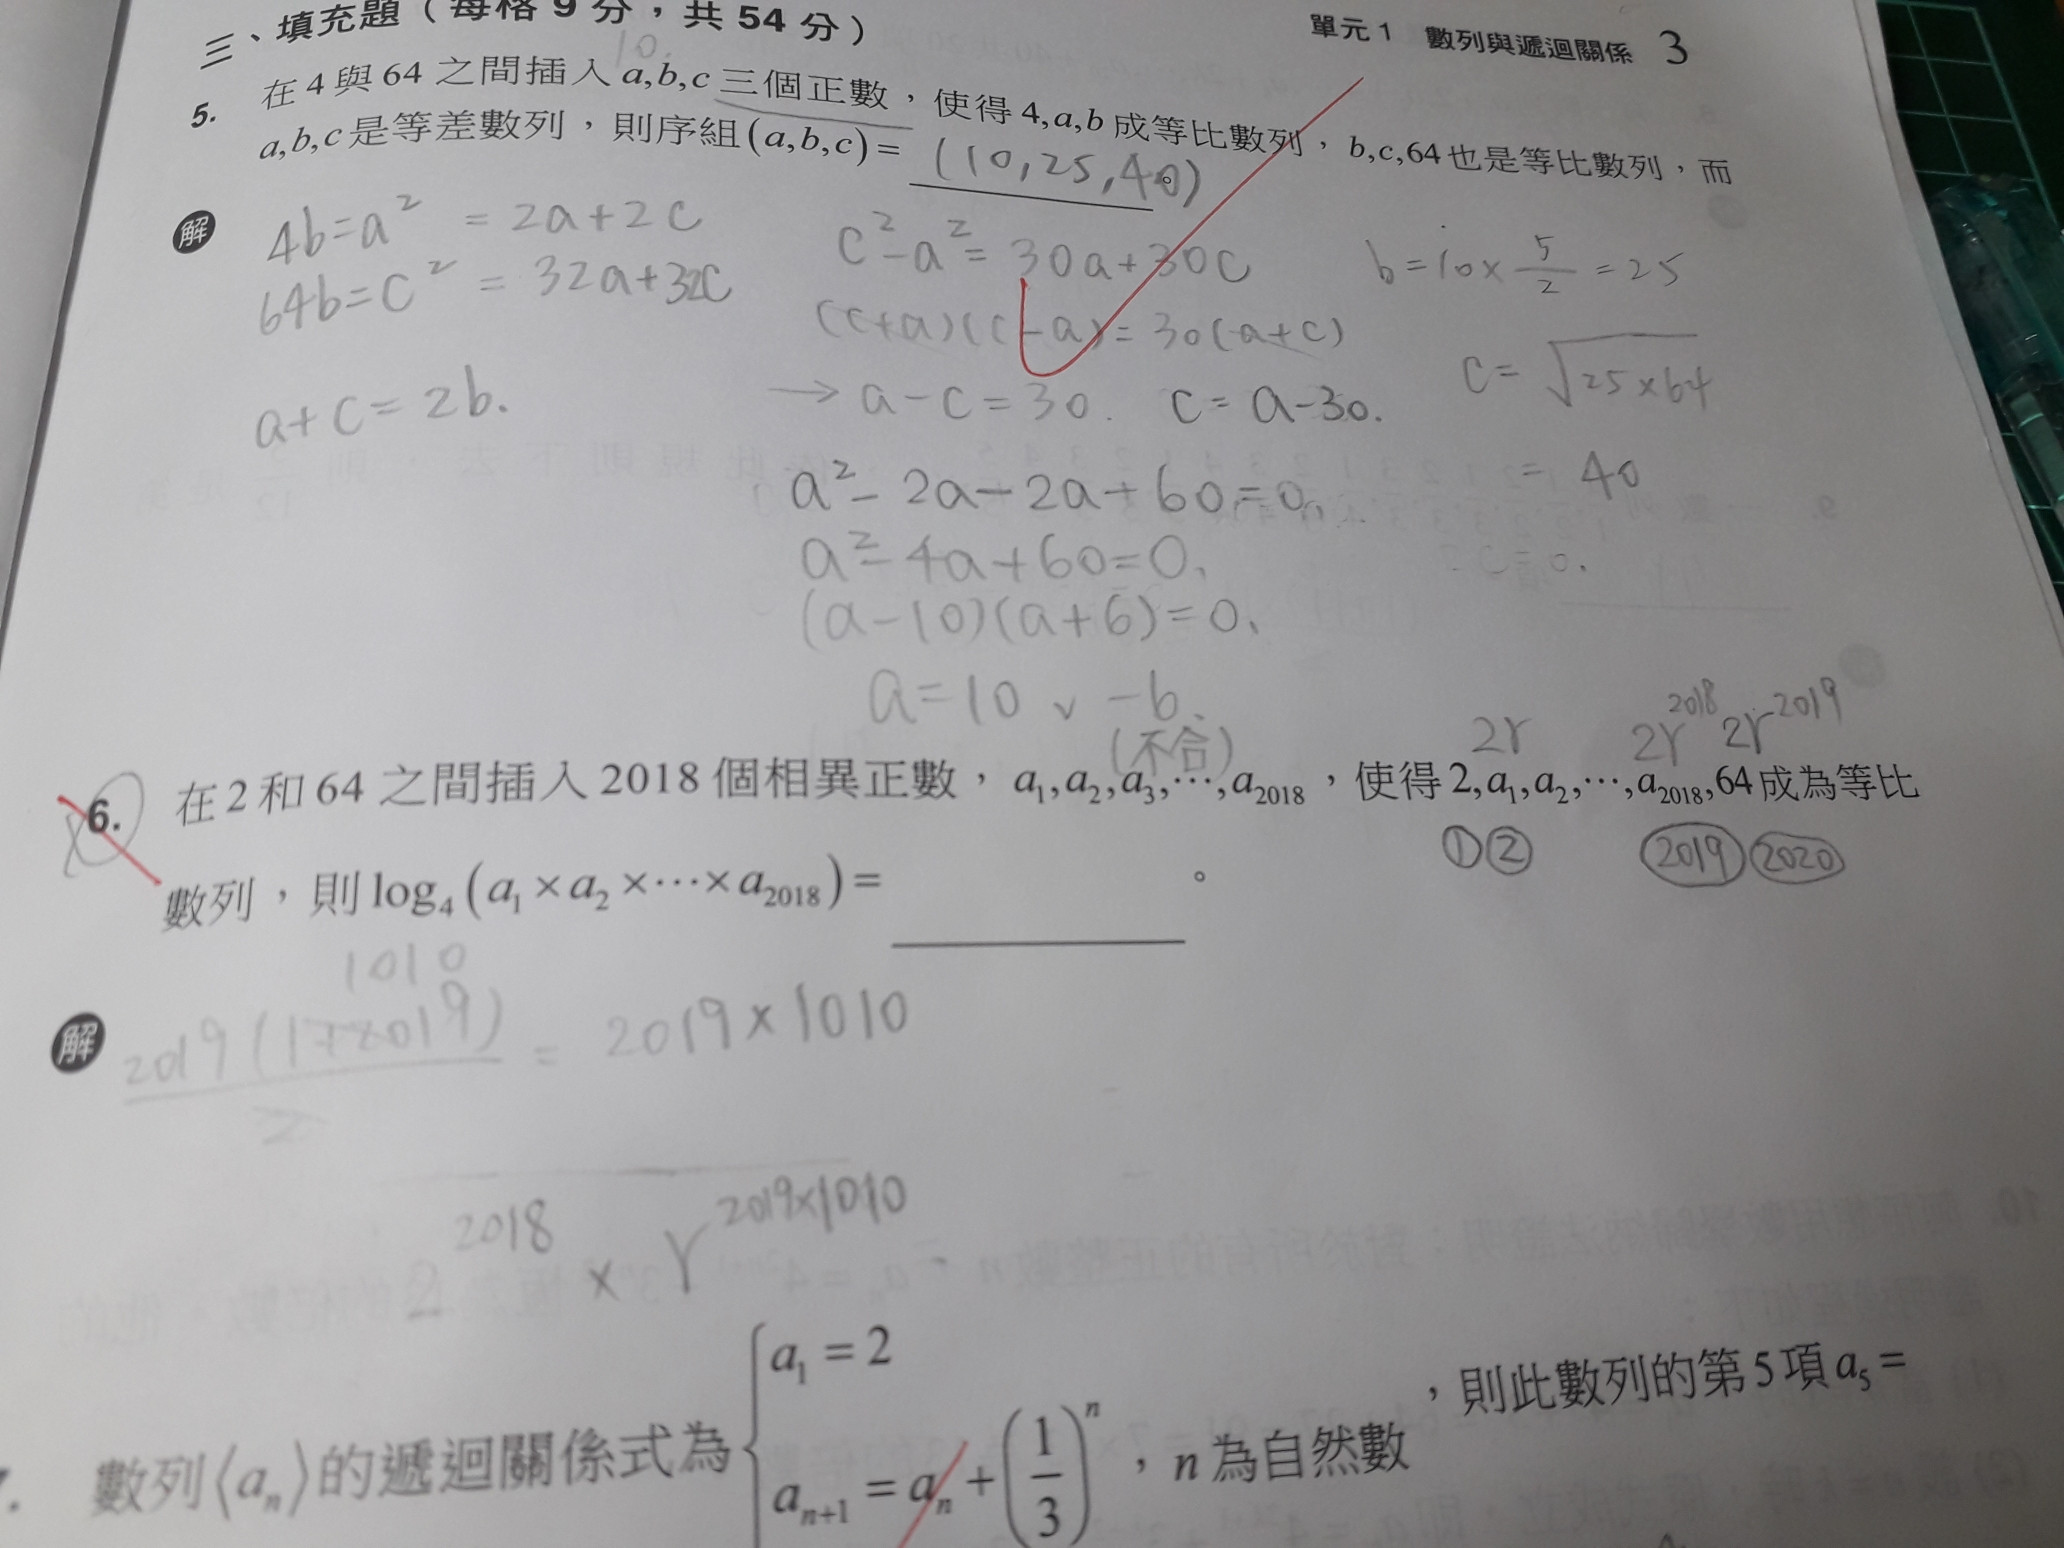 三、填充題(每格 9 分,共 54 分)
單元 1 數列與遞迴關係 3
10.
5. 在 4 與 64 之間插入 a,b,c 三個正數,使得 4,a,b 成等比數列,b,c,64 也是等比數列,而
a,b,c 是等差數列,則序組 (a,b,c) = (10,25,40)。
解
4b=a² = 2a+2c
64b=c² = 32a+32c
a+c=2b.
c²-a²=30a+30c
(c+a)(c-a)=30(a+c)
→ a-c=30. c=a-30.
a²-2a-2a+60=0.
a²-4a+60=0.
(a-10)(a+6)=0.
a=10 ∨ -6.
(不合)
b=10×5/2=25
c=√(25×64)
=40
2r 2r^2018 2r^2019
6. 在 2 和 64 之間插入 2018 個相異正數,a₁,a₂,a₃,⋯,a₂₀₁₈,使得 2,a₁,a₂,⋯,a₂₀₁₈,64 成為等比
① ② 2019 2020
數列,則 log₄(a₁×a₂×⋯×a₂₀₁₈)= 。
解
1010
2019(1+2019)/2 = 2019×1010
2^2018 × r^(2019×1010)
數列⟨aₙ⟩的遞迴關係式為 { a₁=2
aₙ₊₁=aₙ+(1/3)ⁿ ,n 為自然數,則此數列的第 5 項 a₅=